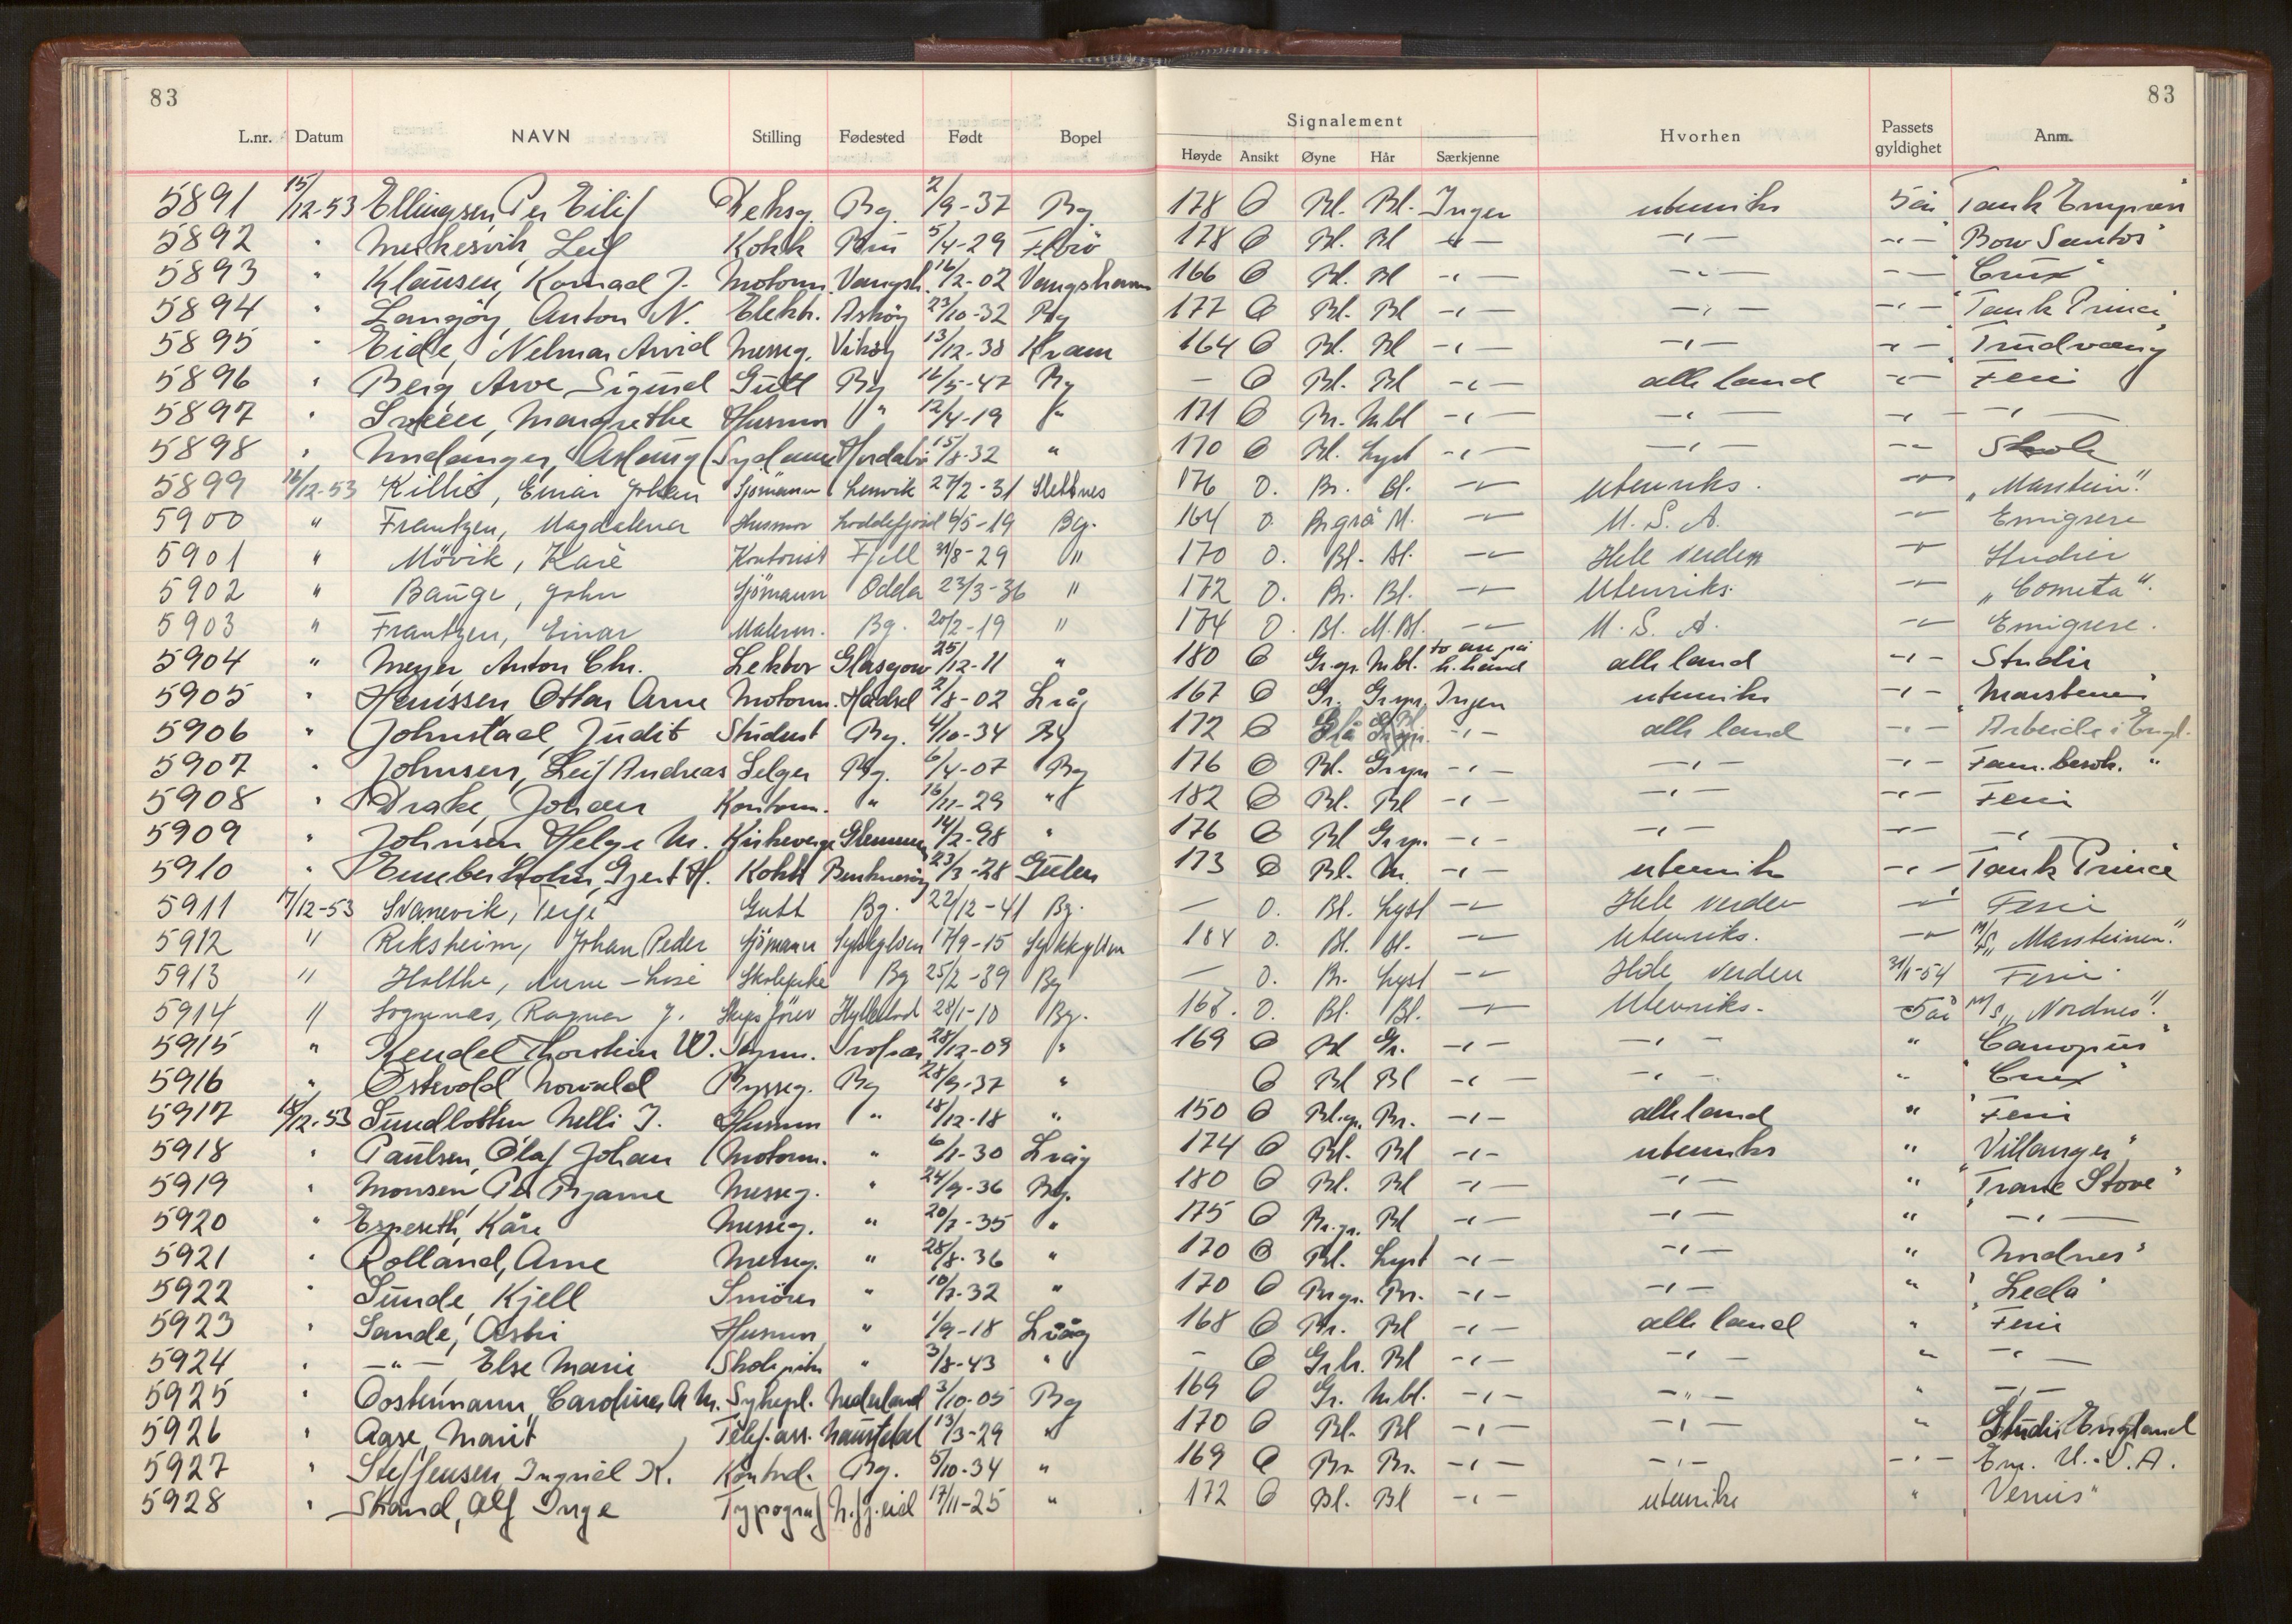 83
83
Signalement
L.nr. Datum NAVN Stilling Fødested Født Bopel Høyde Ansikt Øyne Hår Særkjenne Hvorhen Passets gyldighet Anm.
5891 15/12-53 Ellingsen, Per Eilif Deksg. Bg. 2/9-37 Bg 178 O Bl. Bl. Ingen utenriks 5 år "Tank Empress"
5892 " Leif Kokk 5/4-29 Florö 178 O Bl. Bl -"- -"- -"- "Bow Santos"
5893 " Klausen, Konrad J. Motorm. Vangsh. 16/2-02 Vangshavn 166 O Bl. Bl -"- -"- -"- "Crux"
5894 " Langöy, Anton N. Elektr. Asköy 23/10-32 Bg 177 O Bl. Bl -"- -"- -"- "Tank Prince"
5895 " Eide, Nelmar Arvid Messeg. Viköy 13/12-38 Kvam 164 O Bl. Bl -"- -"- -"- "Trudvang"
5896 " Berg Arve Sigurd Gutt Bg 16/5-47 Bg - O Bl. Bl -"- alle land -"- Ferie
5897 " Margrethe Husmor " 12/4-19 " 171 O Br. M.bl -"- -"- -"- -"-
5898 " Undanger, Aslaug Sydame Hordabö 15/8-32 " 170 O Bl. Lyst -"- -"- -"- Skole
5899 16/12-53 Einar Johan Sjömann Lenvik 27/2-31 Slettnes 176 O. Br. Bl. -"- Utenriks. -"- "Marstein".
5900 " Frantzen, Magdalena Husmor Loddefjord 6/5-19 Bg. 164 O. Br.grå M. -"- U.S.A. -"- Emigrere
5901 " Mövik, Kåre Kontorist Fjell 31/8-29 " 170 O. Bl. Bl. -"- Hele verden -"- Studier
5902 " Bauge, John Sjömann Odda 23/3-36 " 172 O. Br. Bl. -"- Utenriks. -"- "Cometa".
5903 " Frantzen, Einar Malerm. Bg. 20/2-19 " 174 O. Bl. M.Bl. -"- U.S.A. -"- Emigrere.
5904 " Meyer, Anton Chr. Lektor Glasgow 25/12-11 " 180 O Gr.gr. M.bl. to arr på h. hånd alle land -"- Studie
5905 " Henissen Ottar Arne Motorm. Hadsel 2/8-02 Lvåg 167 O Gr. Grspr. Ingen utenriks -"- "Marsteinen"
5906 " Johnstad, Judit Student Bg. 4/10-34 Bg 172 O -"- alle land -"- Arbeide i Engl.
5907 " Johnsen, Leif Andreas Selger Bg. 6/4-07 Bg 176 O Bl. Grspr -"- -"- -"- Fam.besök. "
5908 " Drake, Johan Kontorm. " 16/11-29 " 182 O Bl. Bl -"- -"- -"- Ferie
5909 " Johnsen Helge M. Kirkeverge Glemmen 14/2-98 " 176 O Bl Grspr. -"- -"- -"- -"-
5910 " Gjert H. Kokk 23/3-28 Gulen 173 O Bl. M. -"- utenriks -"- "Tank Prince"
5911 17/12-53 Svanevik, Terje Gutt Bg. 22/12-41 Bg. - O. Bl. Lyst -"- Hele verden -"- Ferie
5912 " Riksheim, Johan Peder Sjömann Sykkylven 17/9-15 Sykkylven 184 O. Bl. Bl. -"- Utenriks. -"- M/S "Marsteinen".
5913 " Holthe, Anne-Lise Skolepike Bg 25/2-39 Bg - O. Br. Lyst -"- Hele verden 31/1-54 Ferie.
5914 " Sognnes, Ragnar J. Skipsförer Hyllestad 28/1-10 Bg. 167. O. Bl. Bl. -"- Utenriks. 5 år M/S "Nordnes".
5915 " Kendel, Thorstein W. Svolvær 28/12-09 " 169 O Bl Gr. -"- -"- " "Canopus"
5916 " Östevold, Norvald Bysseg. Bg 28/9-37 " O Bl Bl -"- -"- " "Crux"
5917 18/12-53 Sundbotten Nelli J. Husmor " 18/12-18 " 150 O Bl.gr. Br. -"- alle land " Ferie
5918 " Paulsen, Olaf Johan Motorm. " 6/1-30 Lvåg 174 O Bl. Bl -"- utenriks " "Villanger"
5919 " Monsen, Per Bjarne Messeg. " 24/9-36 Bg. 180 O Bl. Bl -"- -"- " "Trane Stove"
5920 " Espeseth, Kåre Messeg. " 20/7-35 " 175 O Br.gr. Bl -"- -"- " -"-
5921 " Rolland, Arne Messeg. " 28/8-36 " 170 O Bl. Lyst -"- -"- " Nordnes"
5922 " Sunde, Kjell Smörer " 10/7-32 " 170 O Br.gr. Br. -"- -"- " "Leda"
5923 " Sande, Astri Husmor " 1/9-18 Lvåg 168 O Br. Bl -"- alle land " Ferie
5924 " -"- Else Marie Skolepike " 3/8-43 " - O Gr.br. Bl -"- -"- " -"-
5925 " Oostermann, Carolina A M. Sykepl. Nederland 3/10-05 Bg 169 O Gr. M.bl. -"- -"- " -"-
5926 " Aase, Marit Telef.ass. Naustdal 13/3-29 " 170 O Bl. Bl -"- -"- " Studie England
5927 " Steffensen, Ingrid K. Kontord. Bg. 5/10-34 " 169 O Br. Br. -"- -"- -"- Em. U.S.A.
5928 " Strand, Alf Inge Typograf N.fj.eid 17/11-25 " 172 O Bl. Bl -"- utenriks " "Venus"